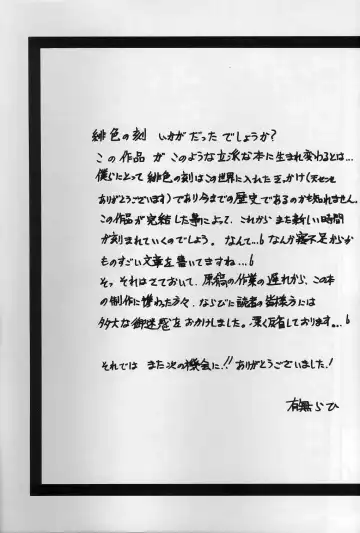 緋色の刻 いかがだったでしょうか?
この作品がこのような立派な本に生まれ変わるとは...
僕らにとって緋色の刻はこの世界に入れたきっかけ(天センセ
ありがとうございます)であり今までの歴史であるのかも知れません。
この作品が完結した事によって、これからまた新しい時間
が刻まれていくのでしょう。なんて...6 なんか寝不足からか
ものすごい文章を書いてますね...6
そっそれはさておいて、原稿の作業の遅れから、この本
の制作に携わった方々、ならびに読者の皆様方には
多大な御迷惑をおかけしました。深く反省しております...6
それでは また次の機会に!! ありがとうございました!
有無らひ